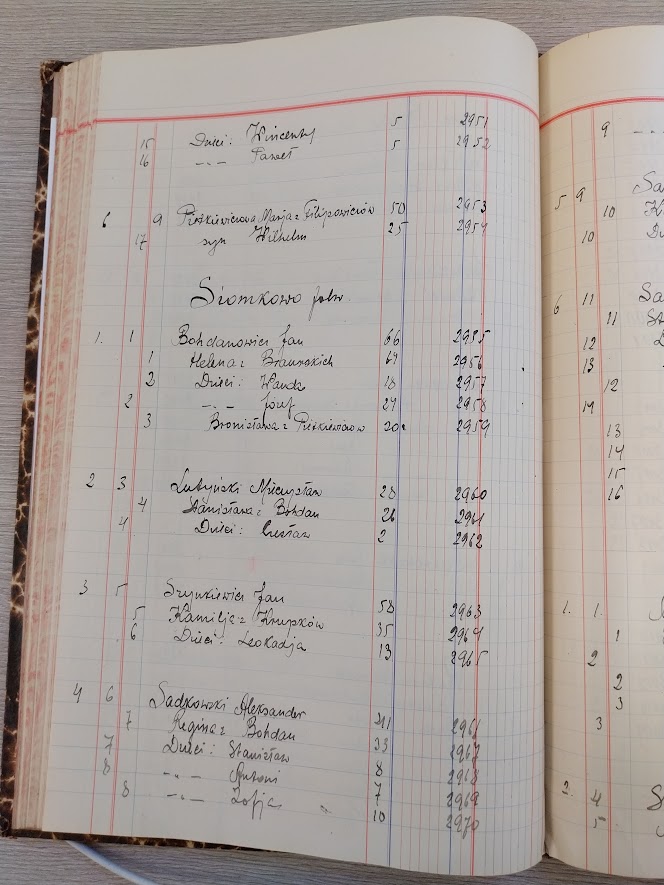 15 Dzieci: Wincenty 5 2951
16 -„- Paweł 5 2952
6 9 Pietkiewiczowa Marja z Filipowiczów 50 2953
17 syn Wilhelm 25 2954
Słomkowo folw.
1. 1 Bohdanowicz Jan 66 2955
1 Helena z 64 2956
2 Dzieci: Wanda 18 2957
2 -„- Józef 24 2958
3 Bronisława z Pietkiewiczów 20 2959
2 3 Mieczysław 28 2960
4 Stanisława z Bohdan 26 2961
4 Dzieci: Czesław 2 2962
3 5 Szynkiewicz Jan 58 2963
5 Kamilja z Krupków 35 2964
6 Dzieci: Leokadja 13 2965
4 6 Sadkowski Aleksander 41 2966
7 Regina z Bohdan 33 2967
7 Dzieci: Stanisław 8 2968
8 -„- Antoni 7 2969
8 -„- Zofja 10 2970
9
5 9
10
10
6 11
11
12
13
12
14
13
14
15
16
1. 1.
1
2
2
3
3
2. 4
5